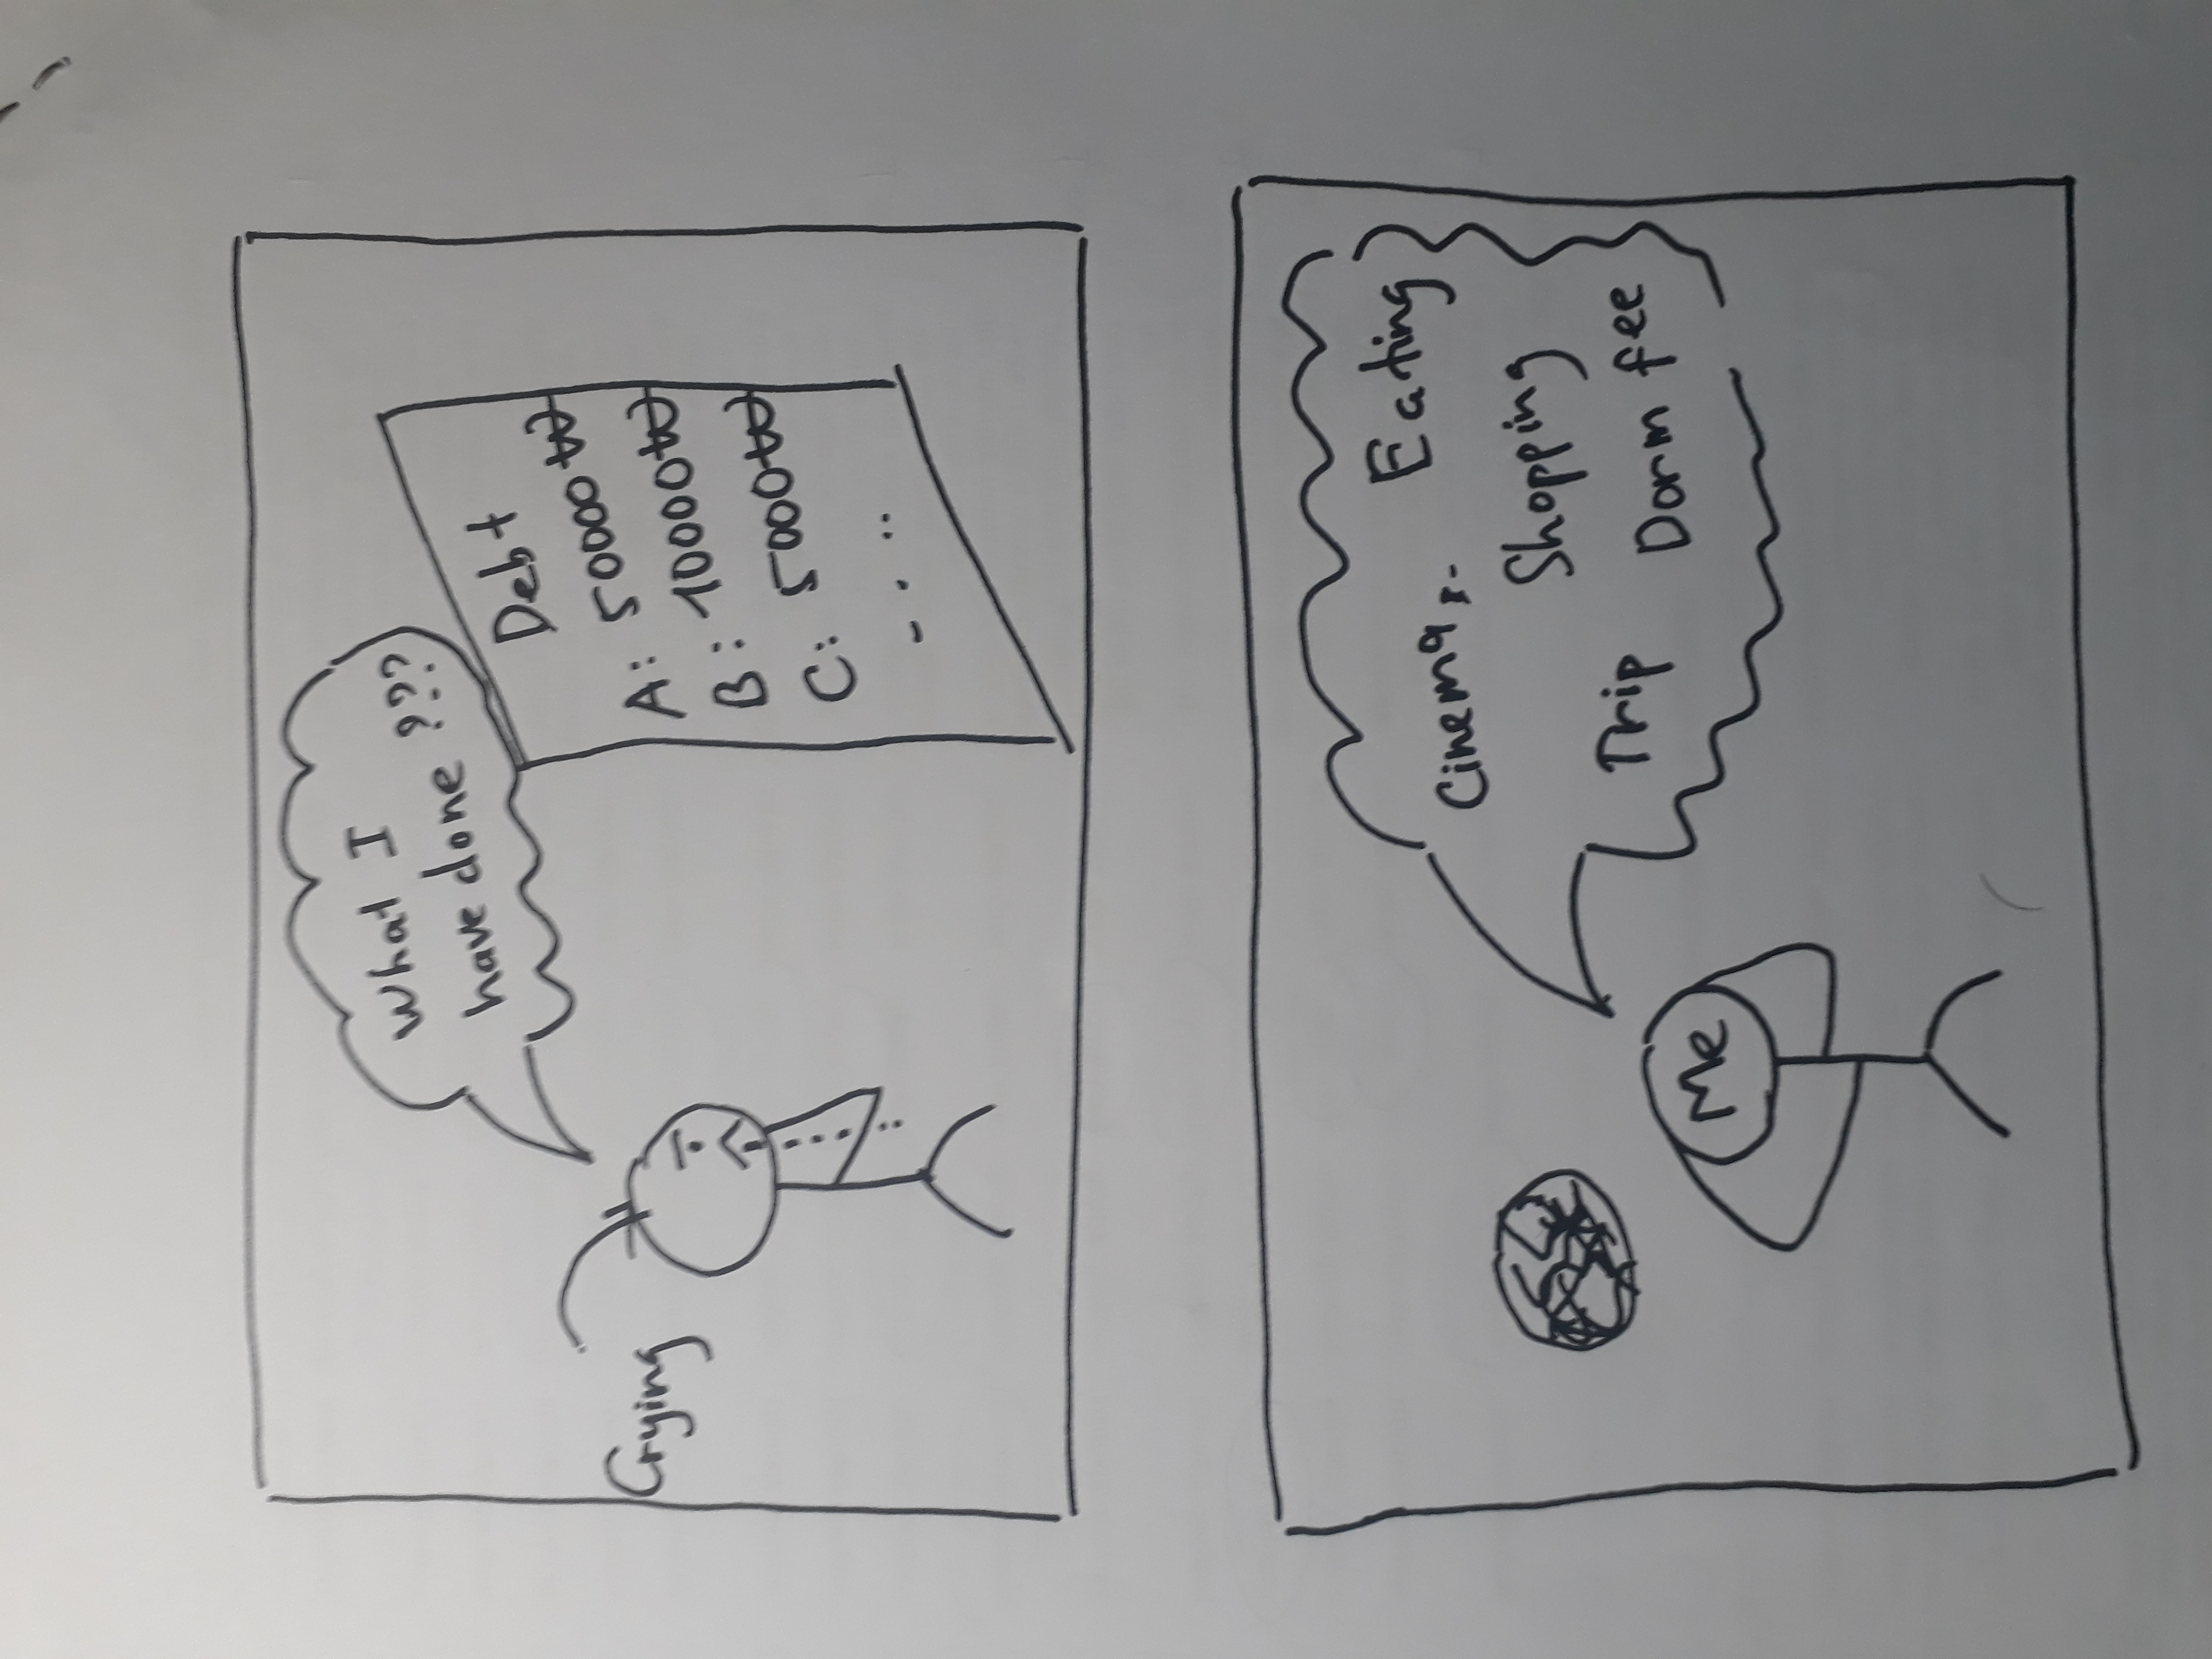 What I
have done ???
Crying
Debt
A: 50000₩
B: 10000₩
C: 5000₩
Cinema,..
Eating
Shopping
Trip
Dorm fee
Me